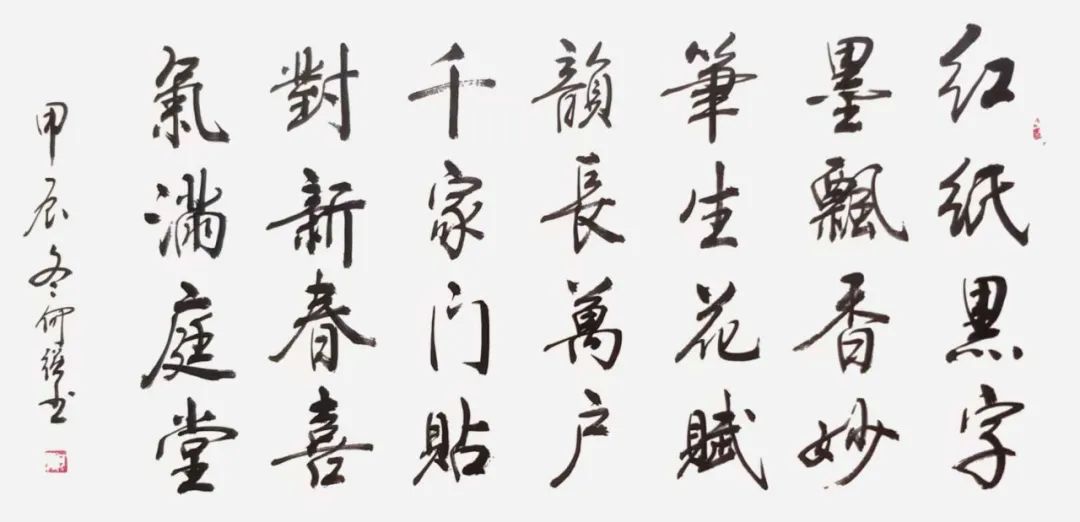 红纸黑字
墨飄香妙
筆生花賦
韻長萬户
千家门貼
對新春喜
氣滿庭堂
甲辰冬何继书